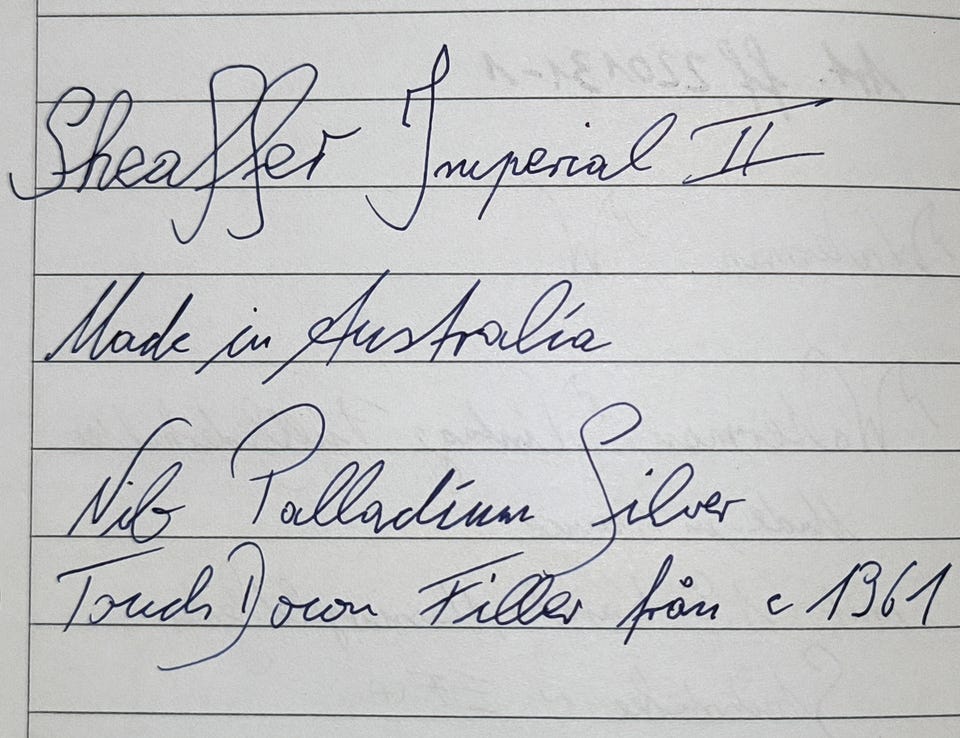 Sheaffer Imperial II
Made in Australia
Nib Palladium Silver
Touch Down Filler från c 1961